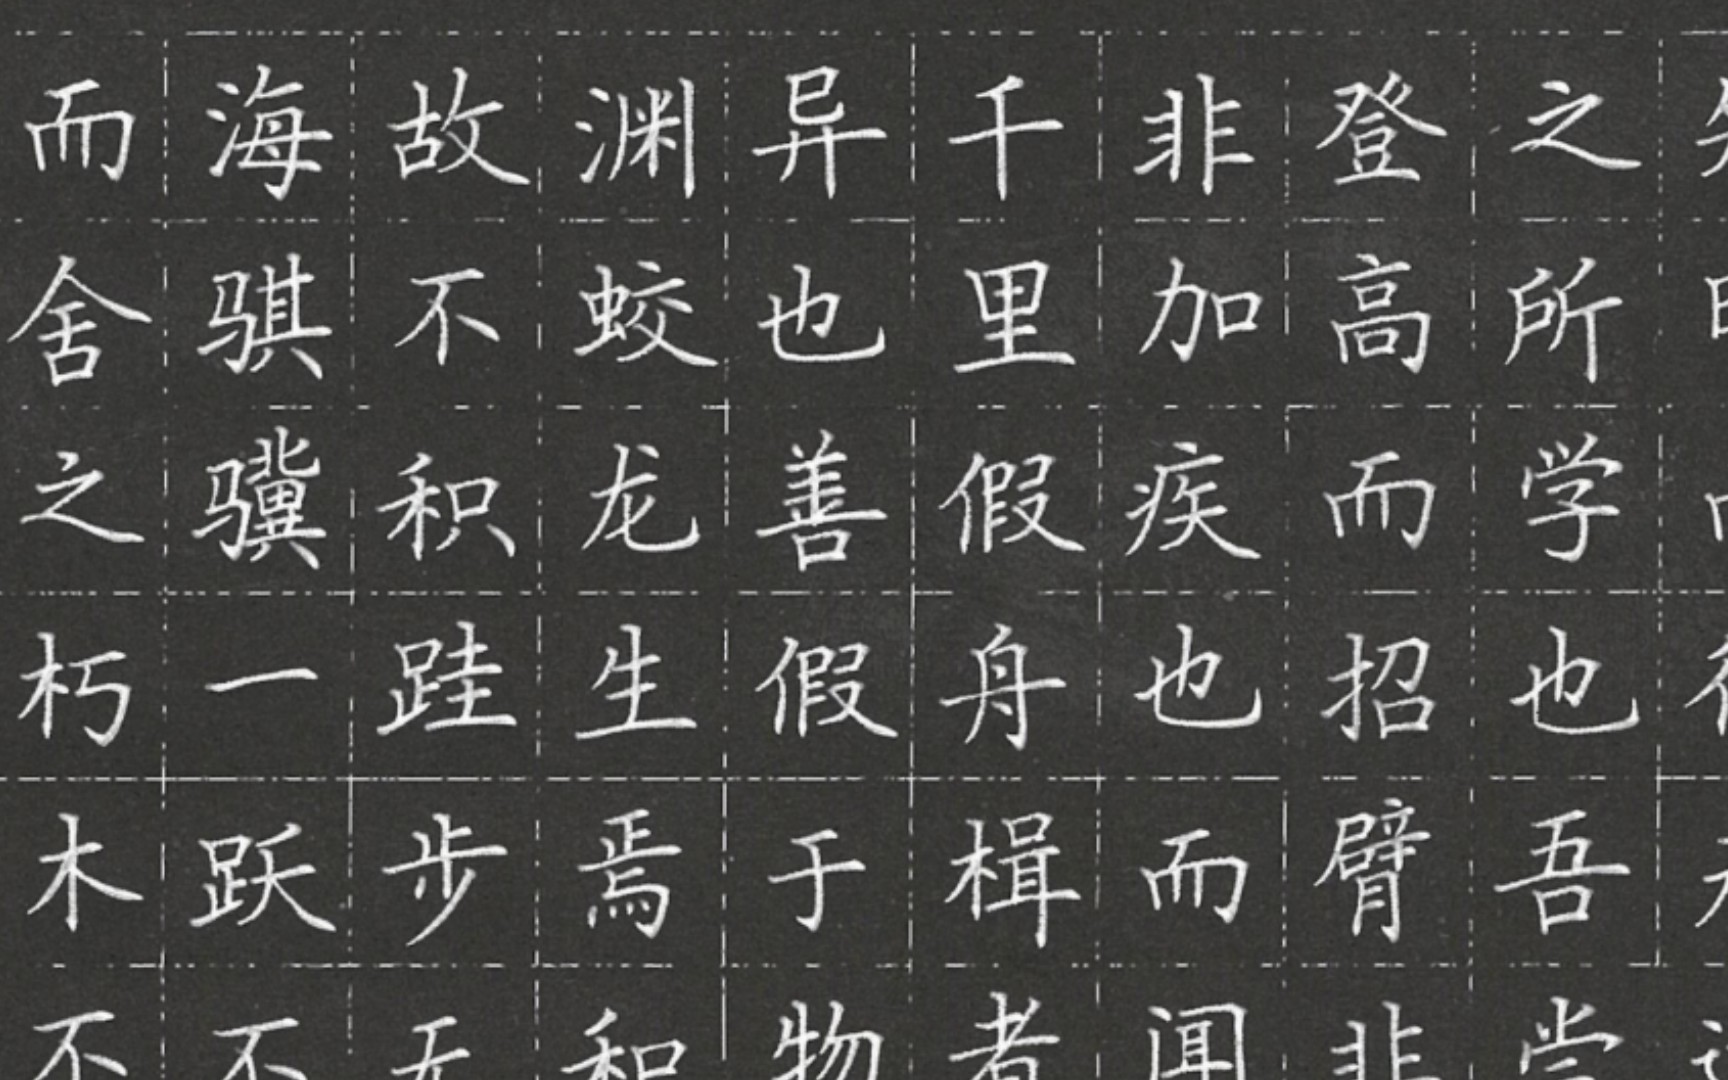 之所学也吾尝
登高而招臂非
非加疾也而闻
千里假舟楫者
异也善假于物
渊蛟龙生焉积
故不积跬步无
海骐骥一跃不
而舍之朽木不